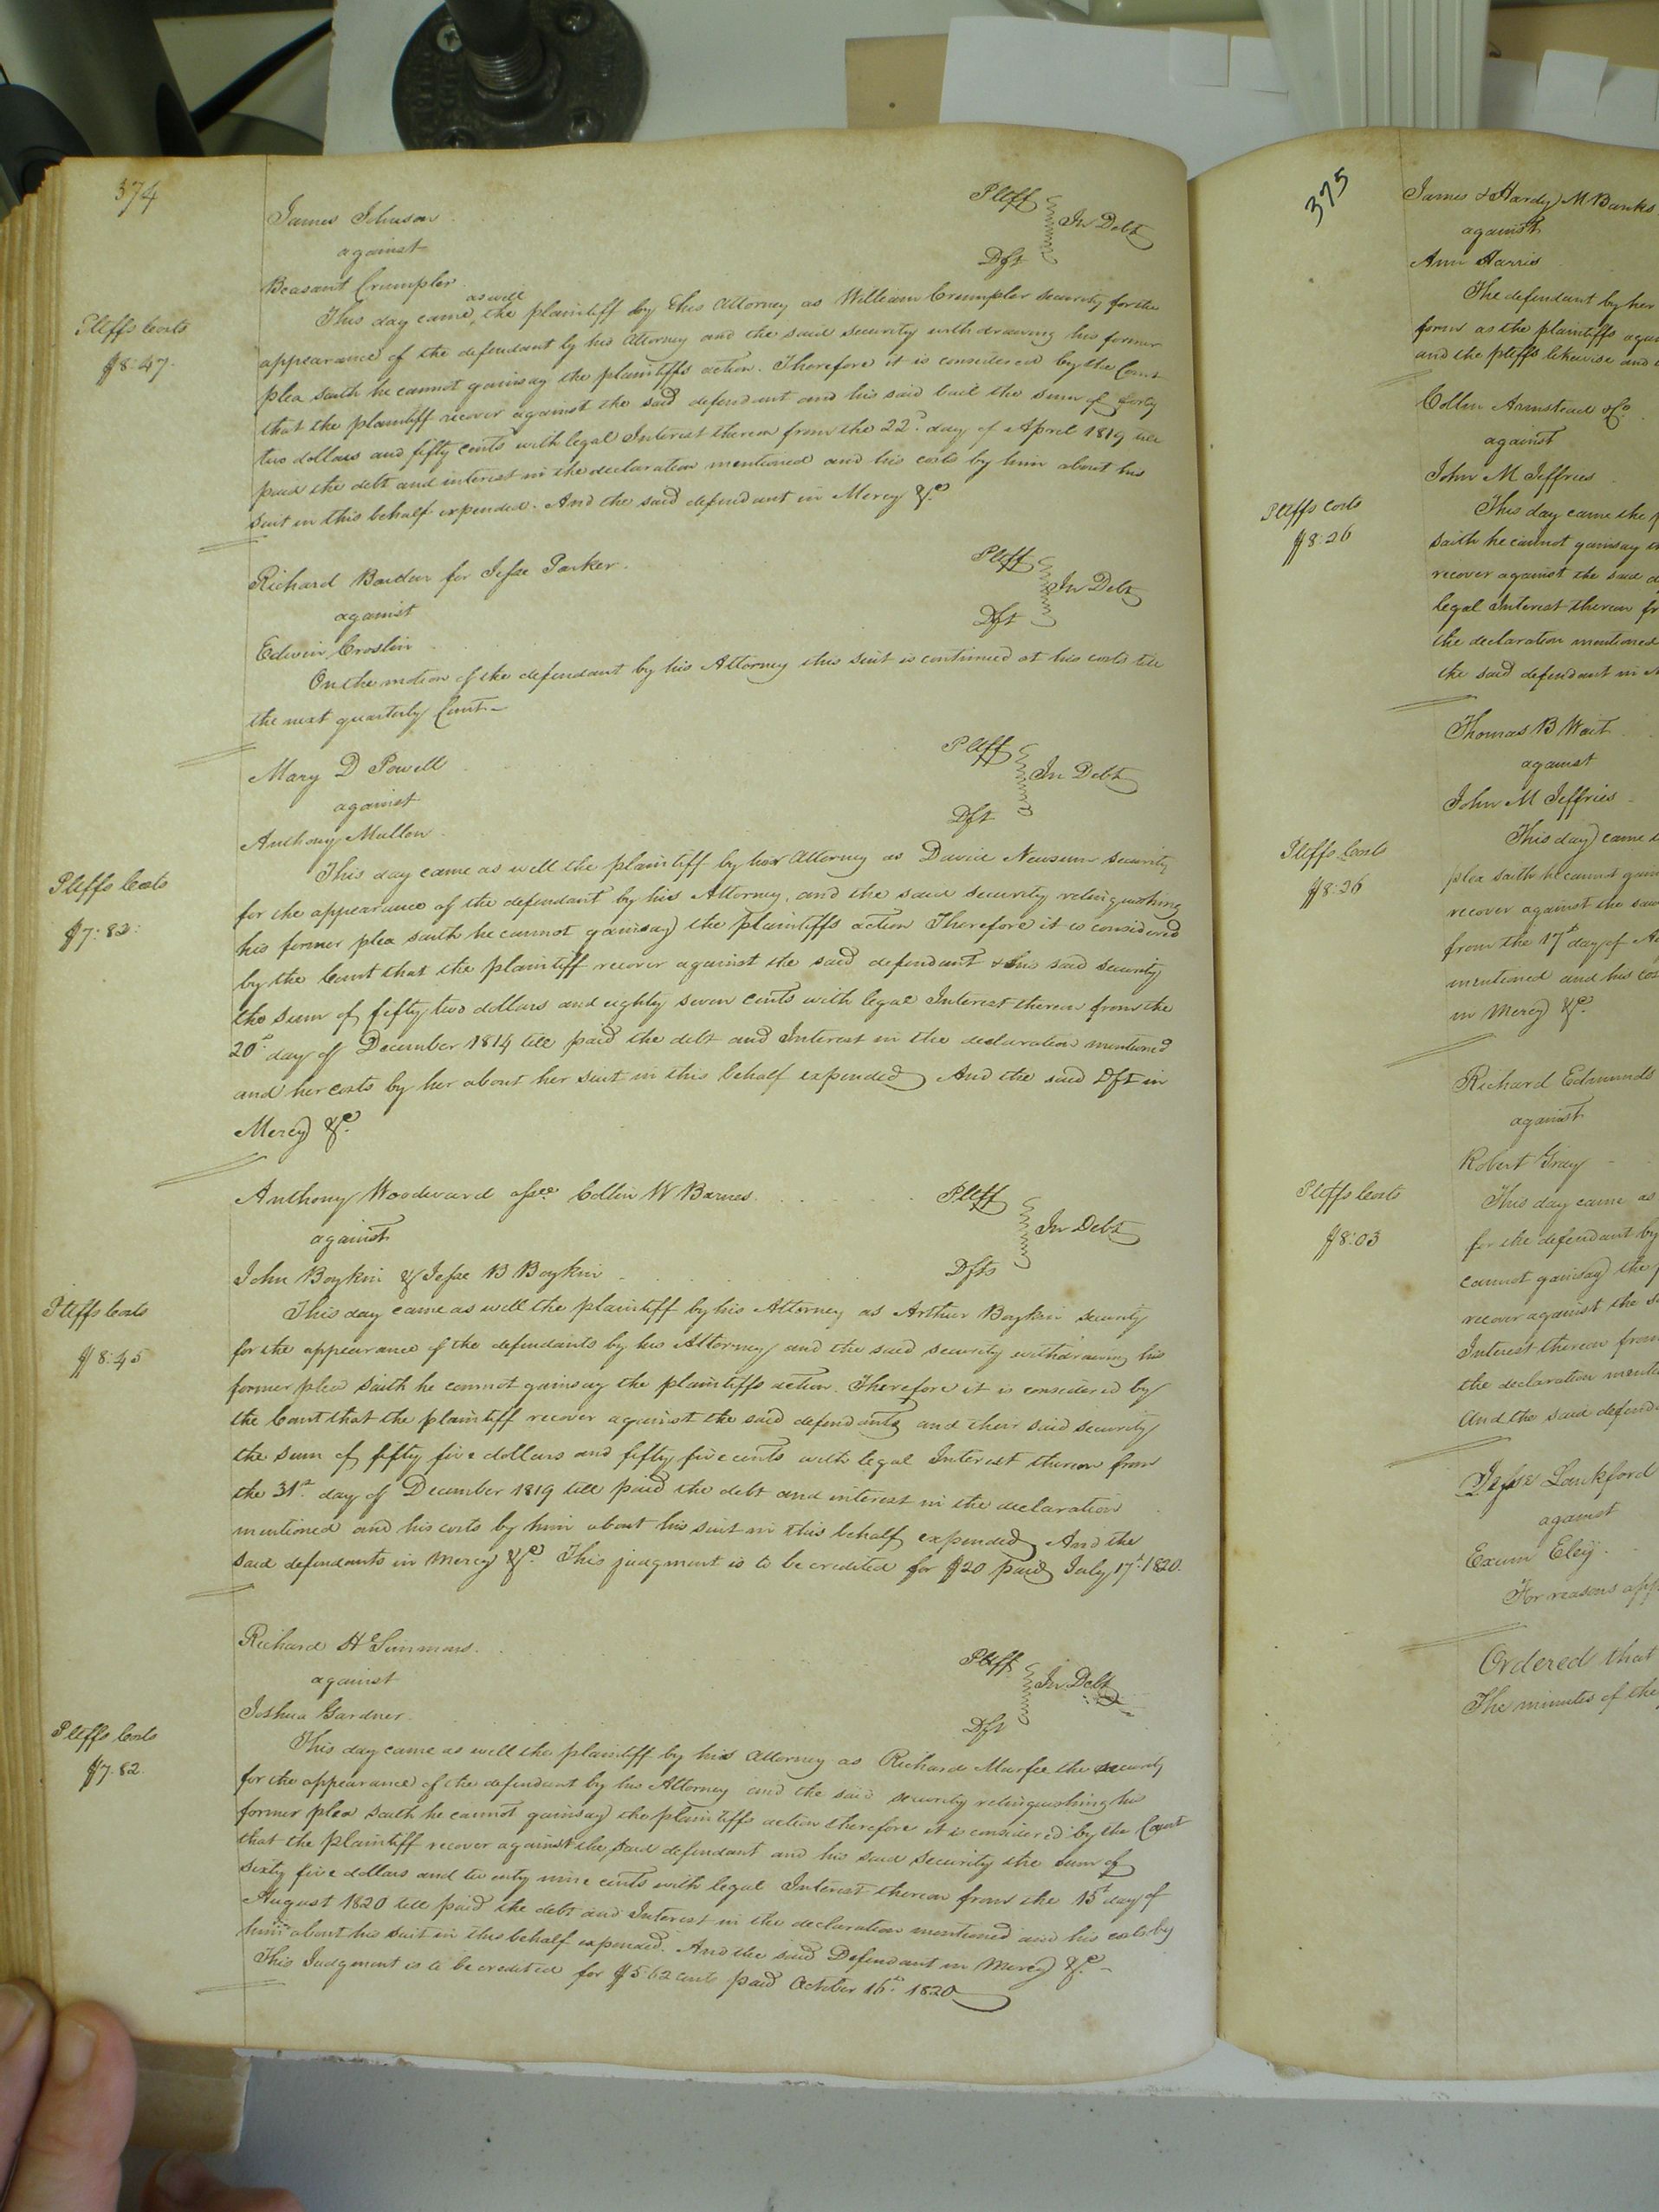 374
James Johnson Pltff
against In Debt
Beasant Crumpler Dft
This day came as well the plaintiff by his Attorney as William Crumpler security for the
Pltffs Costs
$8.47.
appearance of the defendant by his Attorney and the said security withdrawing his former
plea saith he cannot gainsay the plaintiffs action. Therefore it is considered by the Court
that the plaintiff recover against the said defendant and his said bail the sum of forty
two dollars and fifty cents with legal Interest thereon from the 22d. day of April 1819 till
paid the debt and interest in the declaration mentioned and his costs by him about his
suit in this behalf expended. And the said defendant in Mercy &c.
Richard for Jesse Parker. Pltff
against In Debt
Edwin Croslin Dft
On the motion of the defendant by his Attorney this suit is continued at his costs till
the next quarterly Court
Mary D Powell Pltff
against In Debt
Anthony Mullon Dft
This day came as well the plaintiff by her Attorney as David Newsum security
Pltffs Costs
$7:82:
for the appearance of the defendant by his Attorney, and the said security relinquishing
his former plea saith he cannot gainsay the plaintiffs action Therefore it is considered
by the Court that the plaintiff recover against the said defendant & his said security
the sum of fifty two dollars and eighty seven cents with legal Interest thereon from the
20th. day of December 1814 till paid the debt and Interest in the declaration mentioned
and her costs by her about her suit in this behalf expended And the said Dft in
Mercy &c.
Anthony Woodward assee. Collin W Barnes Pltff
against In Debt
John Boykin & Jesse B Boykin Dfts
This day came as well the plaintiff by his Attorney as Arthur Boykin security
Pltffs Costs
$8:45
for the appearance of the defendants by his Attorney and the said security withdrawing his
former plea saith he cannot gainsay the plaintiffs action. Therefore it is considered by
the Court that the plaintiff recover against the said defendants and their said security
the sum of fifty five dollars and fifty five cents with legal Interest thereon from
the 31st. day of December 1819 till paid the debt and interest in the declaration
mentioned and his costs by him about his suit in this behalf expended And the
said defendants in Mercy &c. This judgment is to be credited for $20 paid July 17th. 1820.
Richard H Simmons Pltff
against In Debt
Joshua Gardner Dft
Pltffs Costs
$7.82.
This day came as well the plaintiff by his Attorney as Richard Murfee the security
for the appearance of the defendant by his Attorney and the said security relinquishing his
former plea saith he cannot gainsay the plaintiffs action therefore it is considered by the Court
that the plaintiff recover against the said defendant and his said security the sum of
sixty five dollars and twenty nine cents with legal Interest thereon from the 15th day of
August 1820 till paid the debt and Interest in the declaration mentioned and his costs by
him about his suit in this behalf expended. And the said Defendant in Mercy &c.
This Judgment is to be credited for $5.62 cents paid October 16th. 1820
375
James & Hardy M Banks
against
Ann Harris
The defendant by her
form as the plaintiffs
and the pltffs likewise and
Collin Armstead & Co.
against
John M Jeffries
Pltffs Costs
$8:26
This day came the
saith he cannot gainsay
recover against the said
legal Interest thereon
the declaration mentioned
the said defendant in
Thomas B Wait
against
John M Jeffries
Pltffs Costs
$8:26
This day came
plea saith he cannot
recover against the said
from the 17th day of
mentioned and his
in Mercy &c.
Richard Edmunds
against
Robert Gray
Pltffs Costs
$8:03
This day came as
for the defendant by
cannot gainsay the
recover against the
Interest thereon from
the declaration
And the said
Jesse Lankford
against
Exum Eley
For reasons
Ordered that
The minutes of the